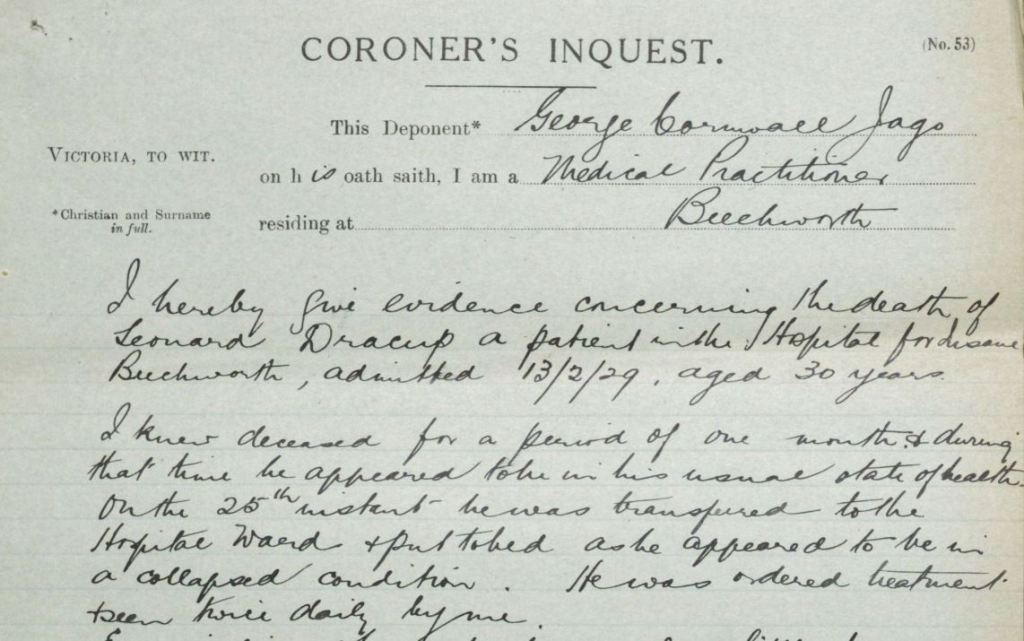 CORONER'S INQUEST.
(No. 53)
This Deponent* George Cornwall Jago
VICTORIA, TO WIT.
on h is oath saith, I am a Medical Practitioner
*Christian and Surname
in full.
residing at Beechworth
I hereby give evidence concerning the death of
Leonard Dracup a patient in the Hospital for Insane
Beechworth, admitted 13/2/29, aged 30 years.
I knew deceased for a period of one month & during
that time he appeared to be in his usual state of health.
On the 25th instant he was transfered to the
Hospital Ward & put to bed as he appeared to be in
a collapsed condition. He was ordered treatment
& seen twice daily by me.